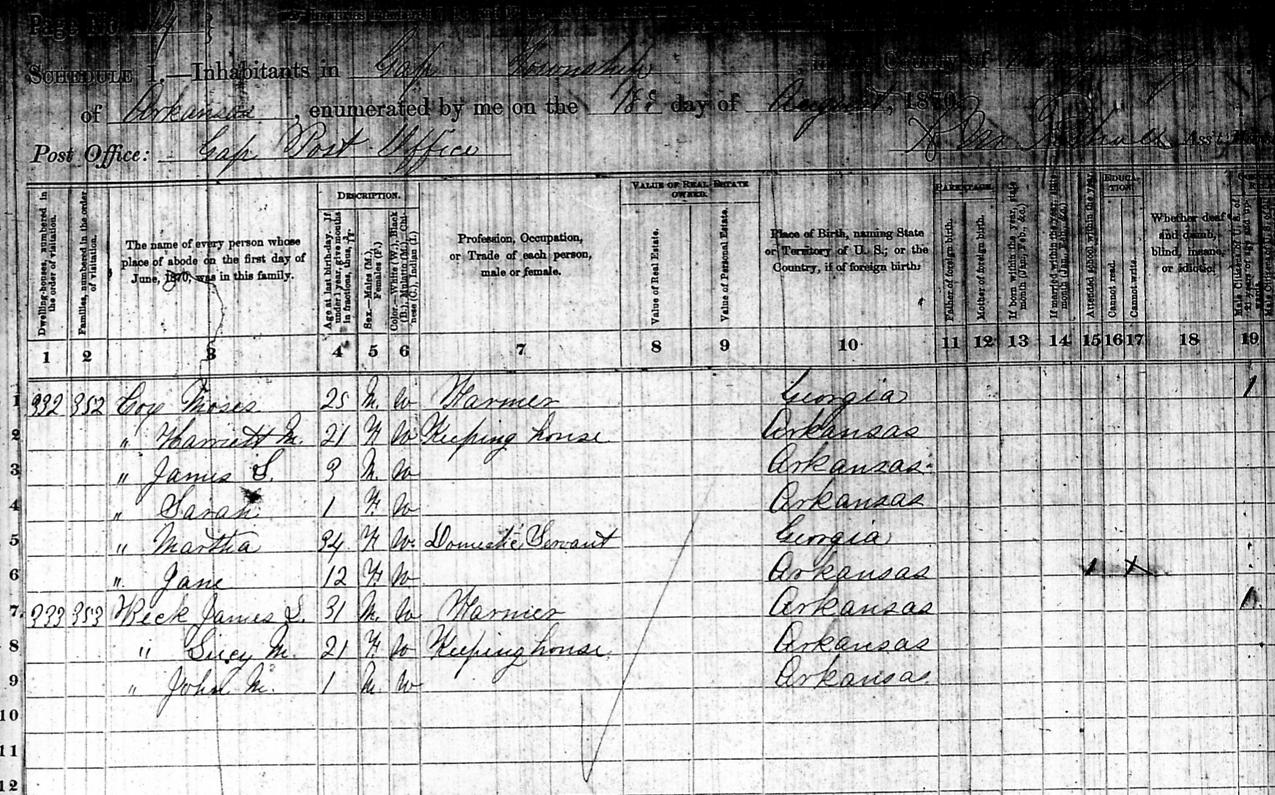 Page No. 49
SCHEDULE 1.—Inhabitants in Gap Township, in the County of Montgomery
of Arkansas, enumerated by me on the 18 day of August, 1870.
Post Office: Gap Post Office Ass't
Dwelling-houses, numbered in the order of visitation.
Families, numbered in the order of visitation.
The name of every person whose place of abode on the first day of June, 1870, was in this family.
DESCRIPTION.
Age at last birth-day. If under 1 year, give months in fractions, thus,
Sex.—Males (M.), Females (F.)
Color.—White (W.), Black (B.), Mulatto (M.), Chinese (C.), Indian (I.)
Profession, Occupation, or Trade of each person, male or female.
VALUE OF REAL ESTATE OWNED.
Value of Real Estate.
Value of Personal Estate.
Place of Birth, naming State or Territory of U. S.; or the Country, if of foreign birth.
PARENTAGE.
Father of foreign birth.
Mother of foreign birth.
If born within the year, state month (Jan., Feb., &c.)
If married within the year, state month (Jan., Feb., &c.)
Attended school within the year.
EDUCATION.
Cannot read.
Cannot write.
Whether deaf and dumb, blind, insane, or idiotic.
Male Citizens of U. S. of 21 years of age and upwards
1 2 3 4 5 6 7 8 9 10 11 12 13 14 15 16 17 18 19
1 332 352 Cox Moses 25 M. W Farmer Georgia 1
2 " Harriett M. 21 F W Keeping house Arkansas
3 " James S. 3 M. W Arkansas
4 " Sarah 1 F W Arkansas
5 " Martha 34 F W. Domestic Servant Georgia
6 " Jane 12 F W Arkansas 1
7 333 353 James S. 31 M. W Farmer Arkansas 1
8 " Lucy M. 21 F W Keeping house Arkansas
9 " John M. 1 M. W Arkansas
10
11
12